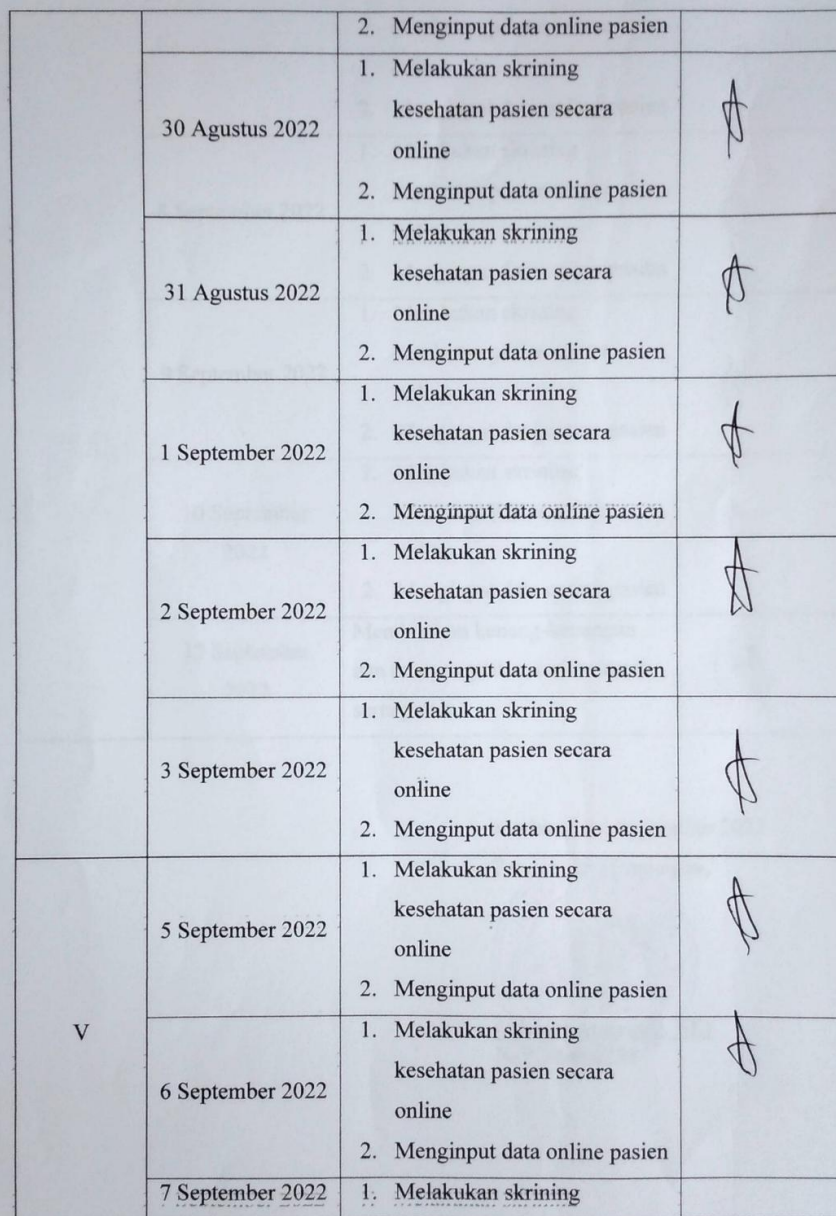 2. Menginput data online pasien
30 Agustus 2022
1. Melakukan skrining
kesehatan pasien secara
online
2. Menginput data online pasien
31 Agustus 2022
1. Melakukan skrining
kesehatan pasien secara
online
2. Menginput data online pasien
1 September 2022
1. Melakukan skrining
kesehatan pasien secara
online
2. Menginput data online pasien
2 September 2022
1. Melakukan skrining
kesehatan pasien secara
online
2. Menginput data online pasien
3 September 2022
1. Melakukan skrining
kesehatan pasien secara
online
2. Menginput data online pasien
V
5 September 2022
1. Melakukan skrining
kesehatan pasien secara
online
2. Menginput data online pasien
6 September 2022
1. Melakukan skrining
kesehatan pasien secara
online
2. Menginput data online pasien
7 September 2022
1. Melakukan skrining